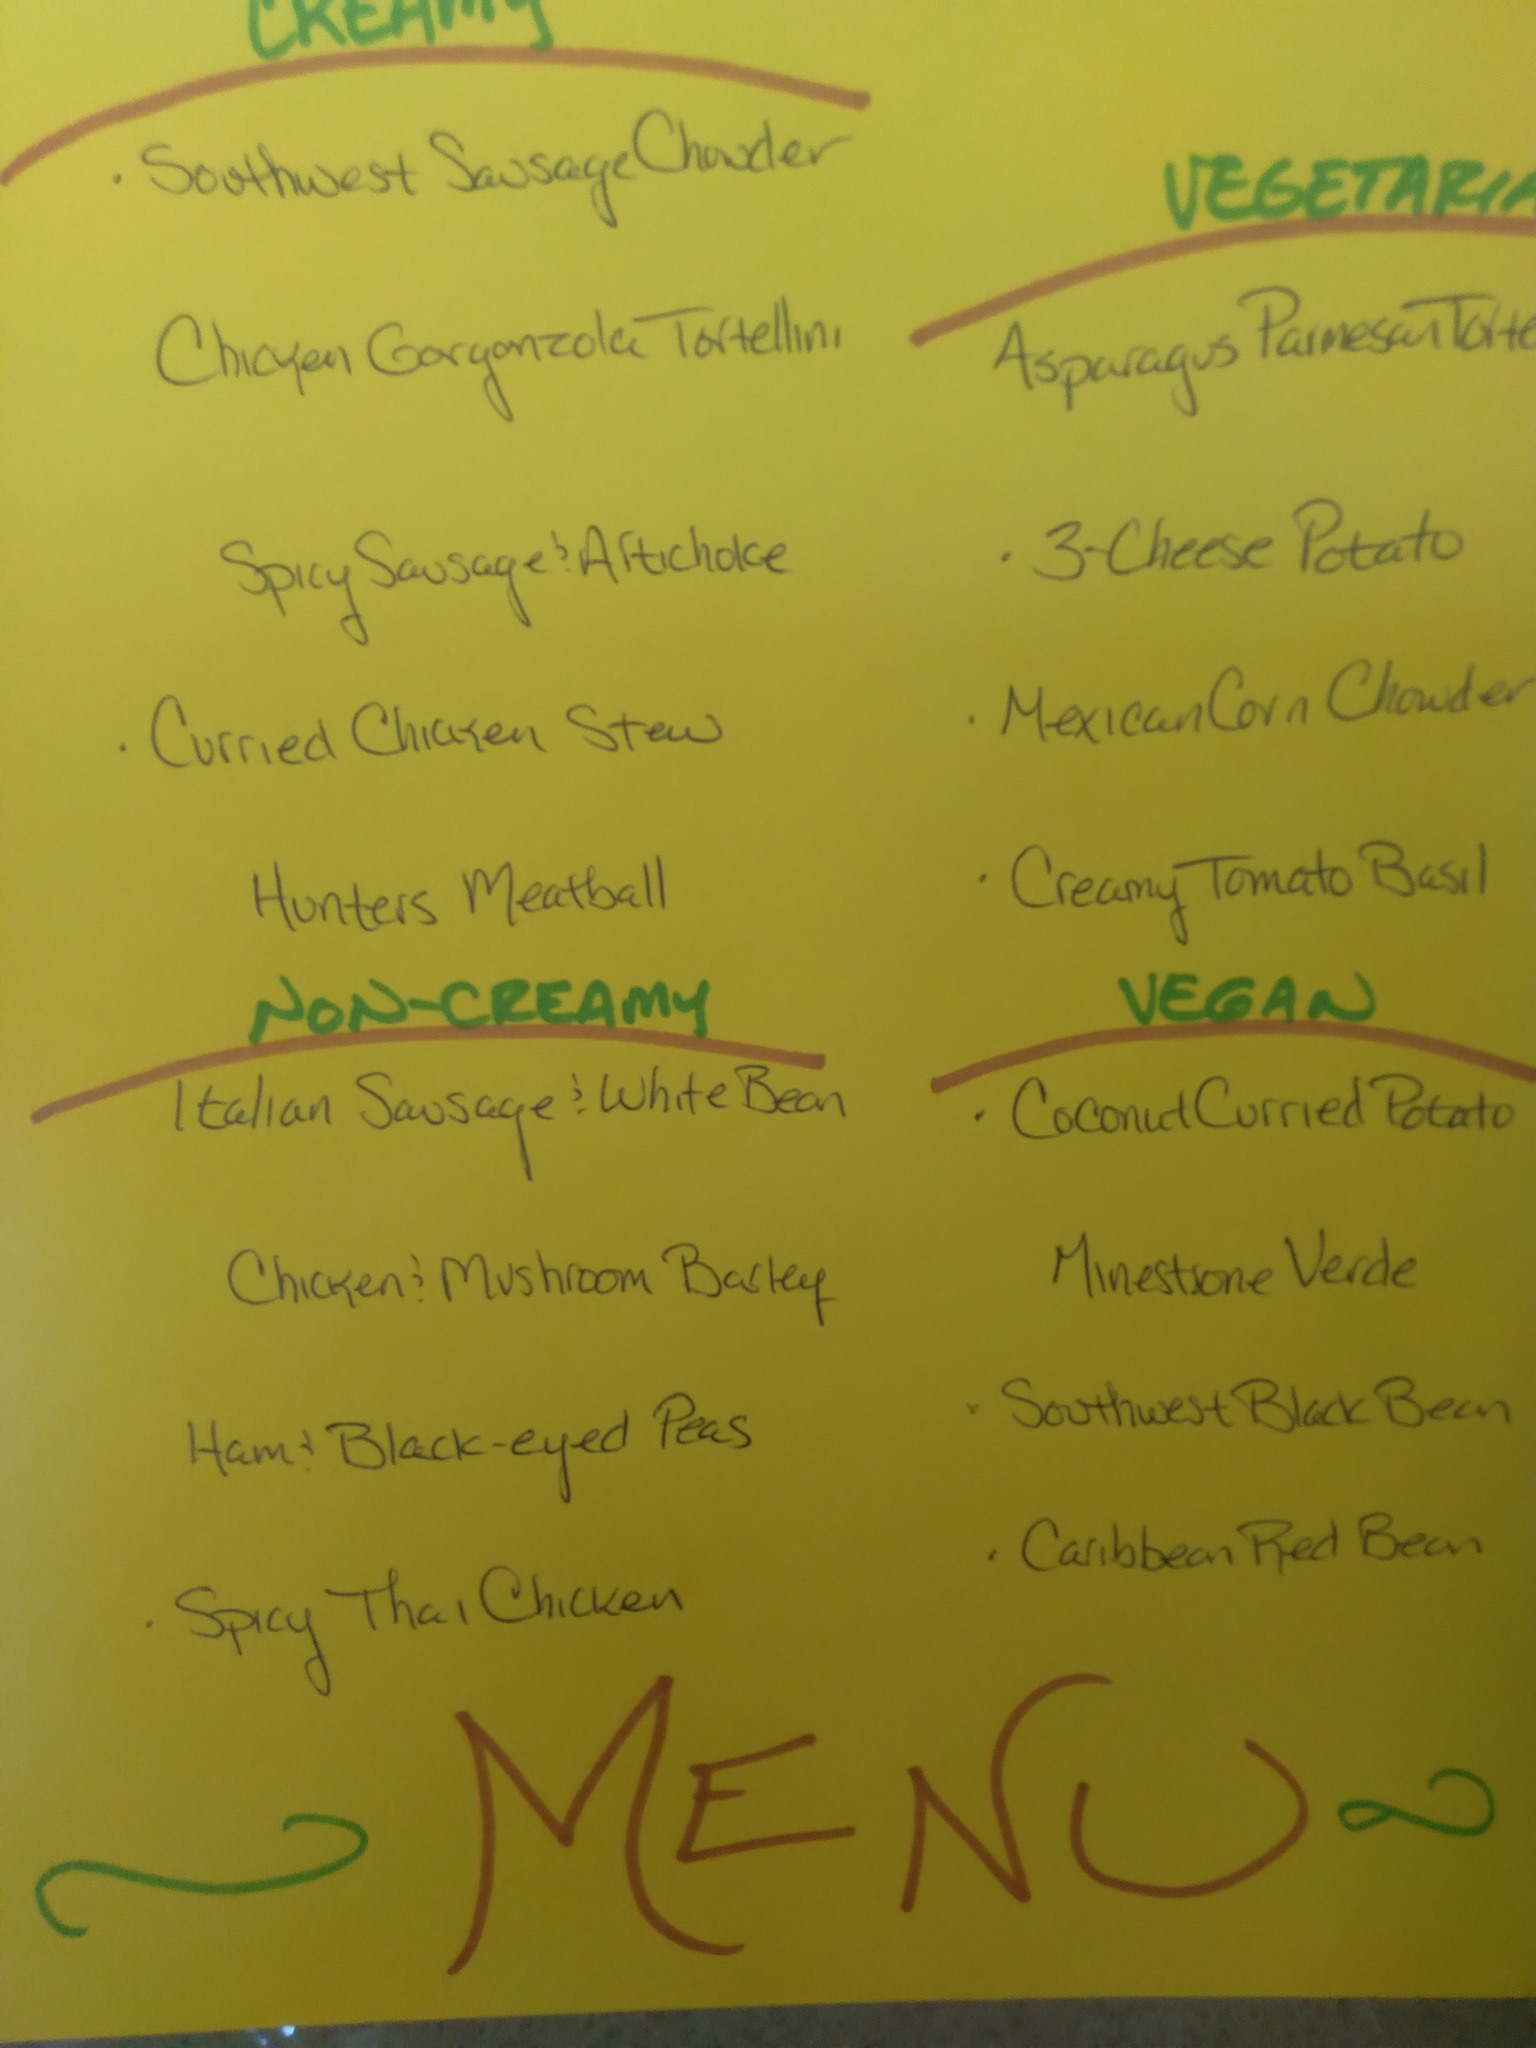 CREAMY
· Southwest Sausage Chowder
Chicken Gorgonzola Tortellini
Spicy Sausage & Artichoke
· Curried Chicken Stew
Hunters Meatball
NON-CREAMY
Italian Sausage & White Bean
Chicken & Mushroom Barley
Ham & Black-eyed Peas
· Spicy Thai Chicken
VEGETARIA
Asparagus Parmesan Torte
· 3-Cheese Potato
· Mexican Corn Chowder
· Creamy Tomato Basil
VEGAN
· Coconut Curried Potato
Minestrone Verde
· Southwest Black Bean
· Caribbean Red Bean
MENU